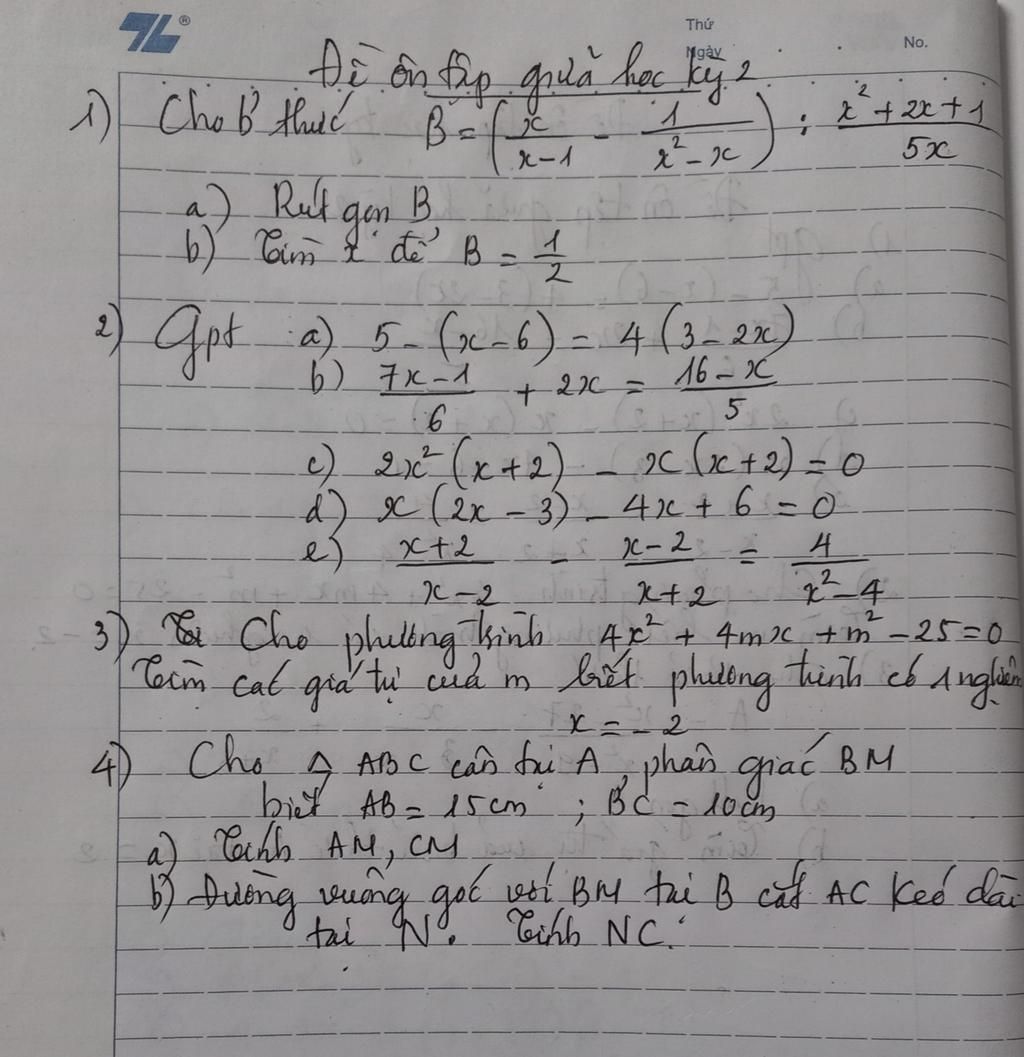 Thứ
Ngày
No.
Đề ôn tập giữa học kỳ 2
1) Cho b' thức B = (x/(x-1) - 1/(x² - x)) : (x² + 2x + 1)/(5x)
a) Rút gọn B
b) Tìm x để B = 1/2
2) Gpt a) 5 - (x - 6) = 4 (3 - 2x)
b) (7x - 1)/6 + 2x = (16 - x)/5
c) 2x² (x + 2) - x (x + 2) = 0
d) x (2x - 3) - 4x + 6 = 0
e) (x + 2)/(x - 2) - (x - 2)/(x + 2) = 4/(x² - 4)
3) Cho phương trình 4x² + 4mx + m² - 25 = 0
Tìm các giá trị của m biết phương trình có 1 nghiệm
x = - 2
4) Cho △ ABC cân tại A, phân giác BM
biết AB = 15cm ; BC = 10cm
a) Tính AM, CM
b) Đường vuông góc với BM tại B cắt AC kéo dài
tại N. Tính NC.